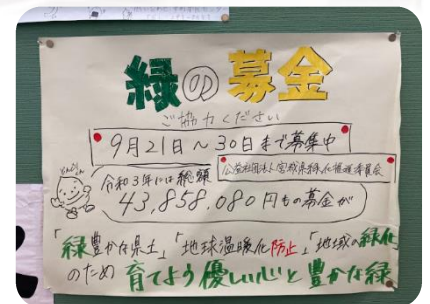 緑の募金
ご協力ください
9月21日〜30日まで募集中
公益社団法人宮城県緑化推進委員会
どんぐりん
令和3年には総額
43,858,080円もの募金が
「緑豊かな県土」「地球温暖化防止」「地域の緑化」
のため 育てよう優しい心と豊かな緑